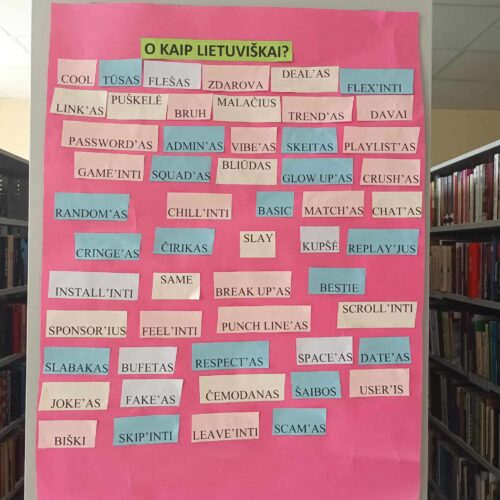 O KAIP LIETUVIŠKAI?
COOL TŪSAS FLEŠAS ZDAROVA DEAL'AS FLEX'INTI
LINK'AS PUŠKELĖ BRUH MALAČIUS TREND'AS DAVAI
PASSWORD'AS ADMIN'AS VIBE'AS SKEITAS PLAYLIST'AS
GAME'INTI SQUAD'AS BLIŪDAS GLOW UP'AS CRUSH'AS
RANDOM'AS CHILL'INTI BASIC MATCH'AS CHAT'AS
CRINGE'AS ČIRIKAS SLAY KUPŠĖ REPLAY'JUS
INSTALL'INTI SAME BREAK UP'AS BESTIE
SPONSOR'IUS FEEL'INTI PUNCH LINE'AS SCROLL'INTI
SLABAKAS BUFETAS RESPECT'AS SPACE'AS DATE'AS
JOKE'AS FAKE'AS ČEMODANAS ŠAIBOS USER'IS
BIŠKI SKIP'INTI LEAVE'INTI SCAM'AS